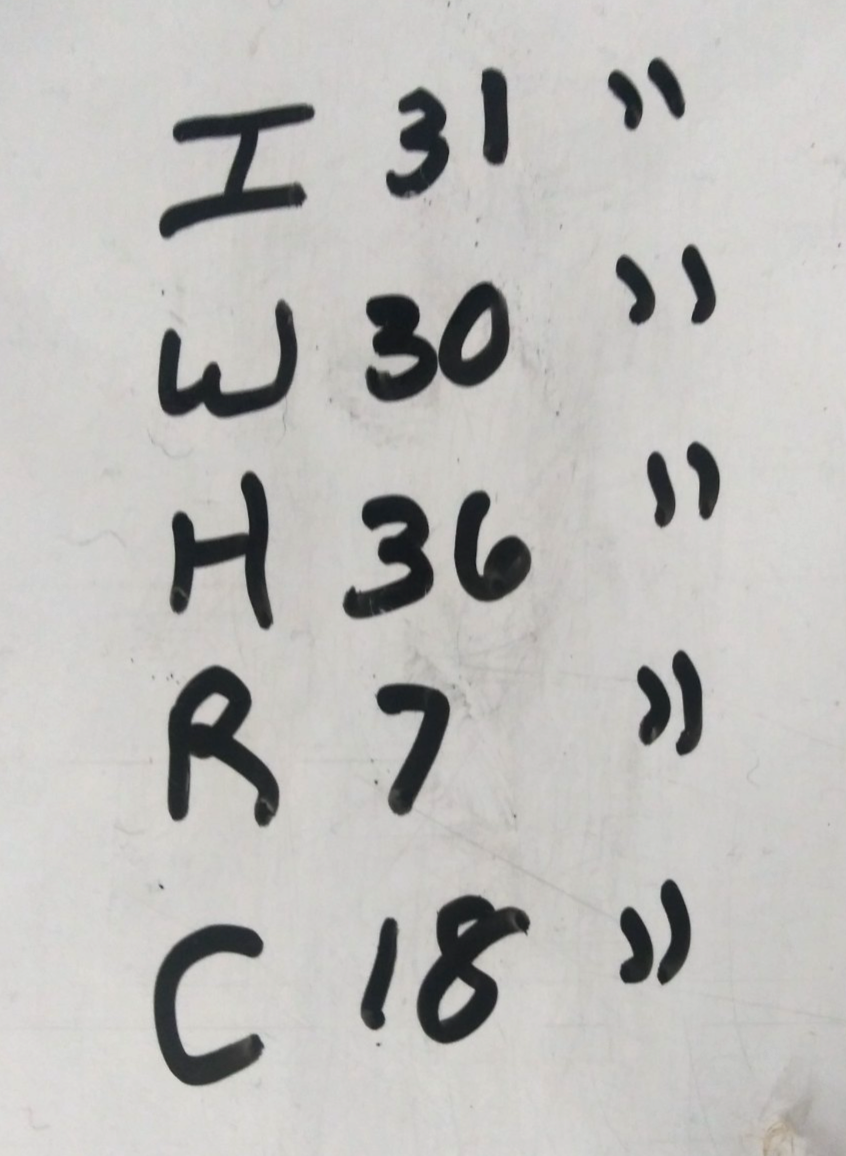 I 31 "
W 30 "
H 36 "
R 7 "
C 18 "